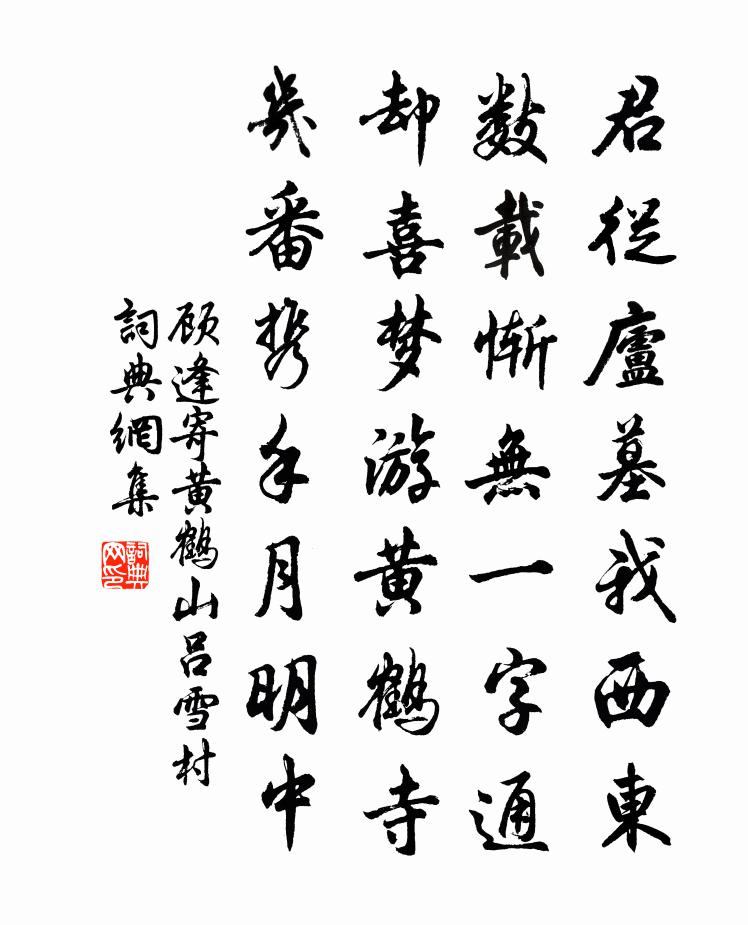 君從廬墓我西東
數載慚無一字通
却喜梦游黄鶴寺
幾番携手月明中
顾逢寄黄鶴山呂雪村
詞典網集
詞典网印